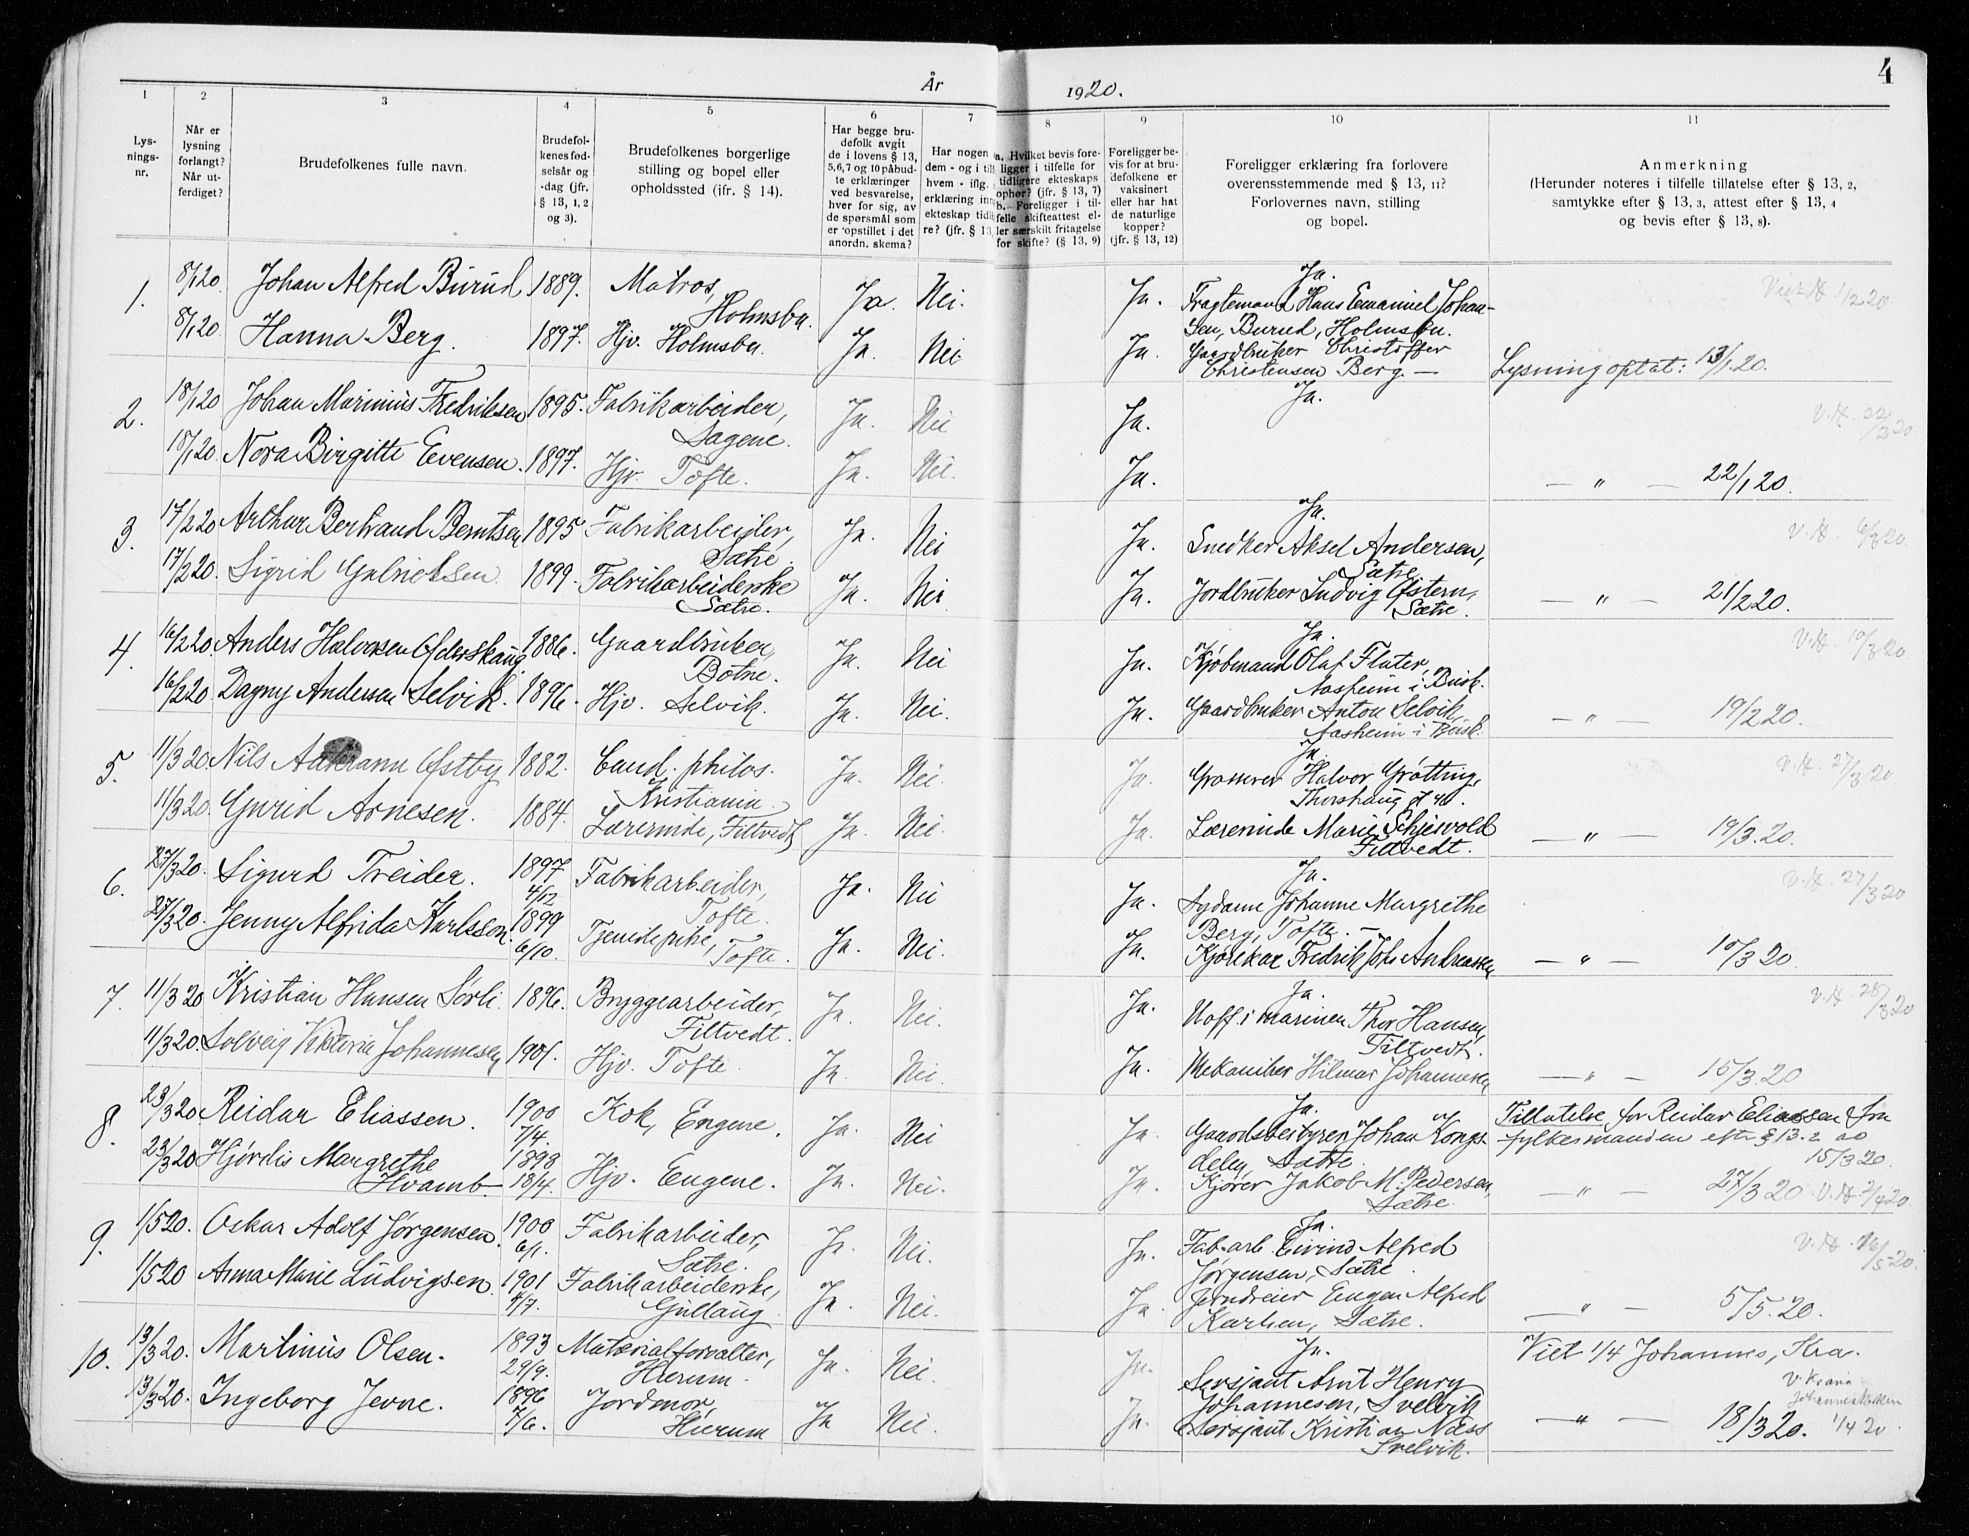 År 1920. 4
1 2 3 4 5 6 7 8 9 10 11
Lysningsnr.
Når er lysning forlangt? Når utferdiget?
Brudefolkenes fulle navn.
Brudefolkenes fødselsår og -dag (jfr. § 13, 1, 2 og 3).
Brudefolkenes borgerlige stilling og bopel eller opholdssted (ifr. § 14).
Har begge brudefolk avgit de i lovens § 13, 5, 6, 7 og 10 påbudte erklæringer ved besvarelse, hver for sig, av de spørsmål som er opstillet i det anordn. skema?
Har nogen
dem - og i til
hvem - iflg.
erklæring inn
ekteskap tidi
re? (jfr. § 13
a. Hvilket bevis foreligger i tilfelle for tidligere ekteskaps ophør? (jfr. § 13, 7) b. Foreligger i tilfelle skifteattest eller særskilt fritagelse for skifte? (§ 13, 9)
Foreligger bevis for at brudefolkene er vaksinert eller har hat de naturlige kopper? (jfr. § 13, 12)
Foreligger erklæring fra forlovere overensstemmende med § 13, 11? Forlovernes navn, stilling og bopel.
Anmerkning
(Herunder noteres i tilfelle tillatelse efter § 13, 2, samtykke efter § 13, 3, attest efter § 13, 4 og bevis efter § 13, 8).
1. 8/1 20 Johan Alfred Burud 1889. Matros, Holmsbu. Ja. Nei. Ja. Ja. Fragtemand Hans Emanuel Johansen, Burud, Holmsbu. Viet H 1/2 20
8/1 20 Hanna Berg. 1897. Hjv. Holmsbu. Ja. Nei Ja. Gaardbruker Christoffer Christensen Berg. — Lysning optat: 13/1 20.
2. 18/1 20 Johan Marinius Fredriksen 1895. Fabrikarbeider, Sagene. Ja. Nei Ja. Ja. V.H. 22/3 20
18/1 20 Nora Birgitte Evensen. 1897. Hjv. Tofte. Ja. Nei. Ja. — " — 22/1 20.
3. 17/2 20 Arthur Bertrand Berntsen 1895 Fabrikarbeider, Sætre. Ja. Nei Ja. Ja. Snedker Aksel Andersen, Sætre V.H. 6/3 20.
17/2 20. Sigrid Gabrielsen 1899. Fabrikarbeiderske Sætre. Ja. Nei Ja. Jordbruker Ludvig Østern, Sætre. — " — 21/2 20.
4. 16/2 20. Anders Halvorsen Olderskaug 1886. Gaardbruker, Botne. Ja. Nei Ja. Ja. Kjøbmand Olaf Flater, Aasheim i Busk. V.H. 10/3 20
16/2 20 Dagny Andersen Selvik. 1896. Hjv. Selvik. Ja. Nei. Ja. Gaardbruker Anton Selvik, Aasheim i Busk. — " — 19/2 20.
5. 11/3 20. Nils Østby 1882. Cand. philos. Kristiania. Ja. Nei. Ja. Ja. Grosserer Halvor Grøtting, V.H. 27/3 20
11/3 20. Gurid Arnesen. 1884. Lærerinde, Filtvedt Ja. Nei. Ja. Lærerinde Marie Schjesvold Filtvedt. — " — 19/3. 20.
6. 27/3 20. Sigurd Treider. 1897 4/12 Fabrikarbeider, Tofte. Ja. Nei Ja. Ja. Sydame Johanne Margrethe Berg, Tofte. — V.H. 27/3 20
27/3 20. Jenny Alfrida Karlsson. 1899 6/10. Tjenestepike, Tofte. Ja. Nei. Ja. Kjørekar Fredrik Johs Andreassen — " — 10/3 20
7. 11/3 20 Kristian Hansen Sørli 1896. Bryggearbeider, Filtvedt. Ja. Nei. Ja. Ja. Uoff. i marinen Thor Hansen, Filtvedt. V.H. 28/3 20
11/3 20. Solveig Viktoria Johannesen 1901. Hjv. Tofte. Ja. Nei. Ja. Mekaniker Hilmar Johannesen — " — 15/3. 20
8. 23/3 20. Reidar Eliassen. 1900 7/4. Kok, Engene. Ja. Nei Ja. Ja. Gaardsbestyrer Johan Kongsdelen, Sætre. Tillatelse for Reidar Eliassen fra fylkesmanden efter § 13. 2 15/3 20.
23/3 20 Hjørdis Margrethe Hvamb. 1898 18/4. Hjv. Engene. Ja. Nei. Ja. Kjører Jakob M. Pedersen, Sætre. — " — 27/3 20 V.H. 7/4 20.
9. 1/5 20. Oskar Adolf Jørgensen. 1900 6/1. Fabrikarbeider, Sætre. Ja. Nei. Ja. Ja. Fab.arb. Eivind Alfred Jørgensen, Sætre V.H. 16/5 20.
1/5 20 Anna Marie Ludvigsen. 1901 4/7. Fabrikarbeiderske, Gullaug Ja. Nei. Ja. Eugen Alfred Karlsen, Sætre. — " — 5/5. 20.
10. 13/3 20. Martinius Olsen. 1893 29/9. Materialforvalter, Hurum. Ja. Nei. Ja. Ja. Sersjant Arnt Henry Johannesen, Svelvik Viet 1/4 Johannes, Kra.
13/3 20. Ingeborg Jevne. 1896 7/6. Jordmor, Hurum Ja Nei. Ja. Sersjant Kristian Næss Svelvik. — " — 18/3 20. V. Krania Johanneskirken 1/4 20